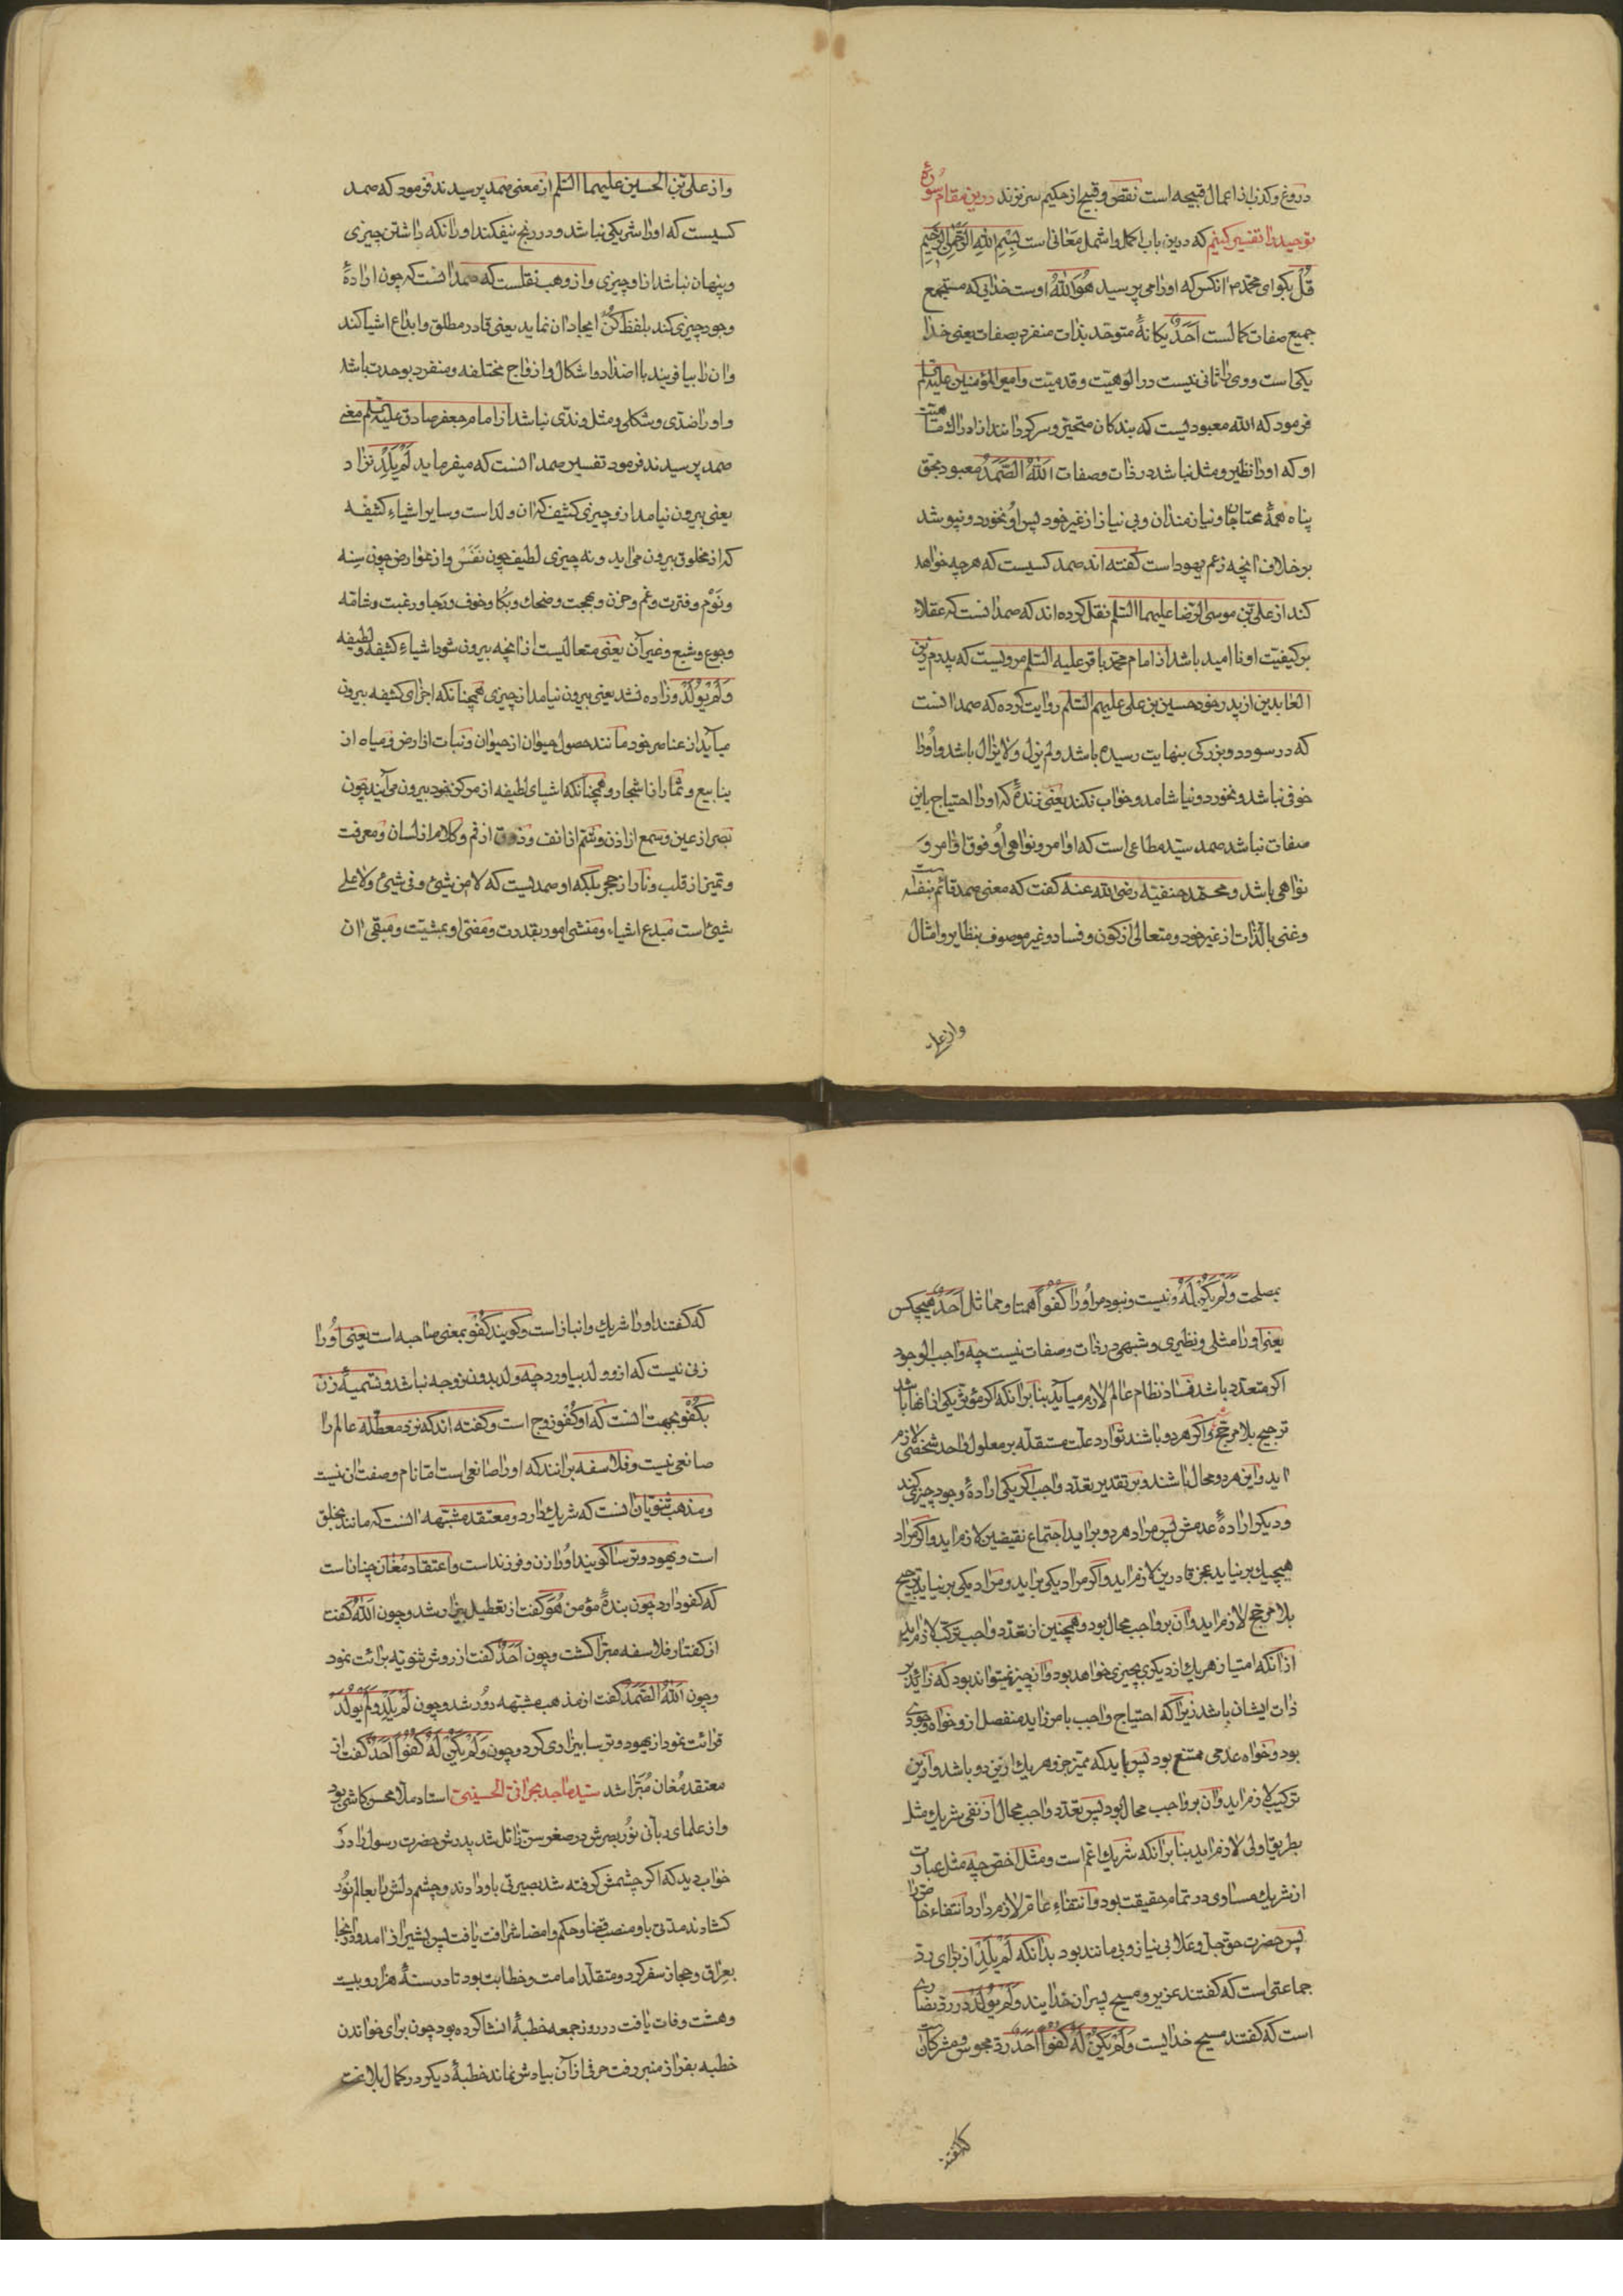 دروغ و کذب از اعمال قبیحه است نقص و قبیح از حکیم سر نزند درین مقام سورۀ
توحید را تفسیر کنیم که درین باب اکمل و اشمل معانی است بِسْمِ اللهِ الرَّحْمٰنِ الرَّحِیمِ
قُلْ بکو ای محمد مر انکس که اورا می پرسید هُوَ اللهُ اوست خدایی که مستجمع
جمیع صفات کمالست اَحَدٌ یکانۀ متوحد بذات منفرد بصفات یعنی خدا
یکی است و وی را ثانی نیست در الوهیت و قدمیت و امیر المؤمنین علیه السلام
فرمود که الله معبودیست که بندکان متحیر و سرکردانند از ادراک ماهیت
او که اورا نظیر و مثل نباشد در ذات و صفات اَللهُ الصَّمَدُ معبود بحق
پناه همۀ محتاجان و نیازمندان و بی نیاز از غیر خود پس او نخورد و نپوشد
بر خلاف انچه زعم یهود است کفته اند صمد کسیست که هرچه خواهد
کند از علی بن موسی الرضا علیهما السلام نقل کرده اند که صمد انست که عقلاء
بر کیفیت او نا امید باشد از امام محمد باقر علیه السلام مرویست که پدرم زین
العابدین از پدر خود حسین بن علی علیهم السلام روایت کرده که صمد انست
که در سودد و بزرکی بنهایت رسیده باشد و لم یزل و لا یزال باشد و اورا
خوفی نباشد و نخورد و نیاشامد و خواب نکند یعنی زندۀ که اورا احتیاج باین
صفات نباشد صمد سید مطاعی است که اوامر و نواهی او فوق اوامر و
نواهی باشد و محمد حنفیه رضی الله عنه کفت که معنی صمد قائم بنفسه است
و غنی بالذات از غیر خود و متعالی از کون و فساد و غیر موصوف بنظایر و امثال
و از علی
و از علی بن الحسین علیهما السلام از معنی صمد پرسیدند فرمود که صمد
کسیست که اورا شریکی نباشد و در رنج نیفکند اورا نکه داشتن چیزی
و پنهان نباشد از او چیزی و از وهب نقلست که صمد انست که چون ارادۀ
وجود چیزی کند بلفظ کُنْ ایجاد ان نماید یعنی قادر مطلق و ابداع اشیا کند
و ان را بیافریند با اضداد و اشکال و ازواج مختلفه و منفرد بوحدت باشد
و اورا ضدی و شکلی و مثل و ندی نباشد از امام جعفر صادق علیه السلام معنی
صمد پرسیدند فرمود تفسیر صمد انست که میفرماید لَمْ یَلِدْ نزاد
یعنی بیرون نیامد از و چیزی کثیف که ان ولد است و سایر اشیاء کثیفه
که از مخلوق بیرون می اید و نه چیزی لطیف چون نَفَسْ و از عوارض چون سِنه
و نَوْم و فترت و غم و حزن و بهجت و ضحک و بکا و خوف و رجا و رغبت و شامه
و جوع و شبع و غیر آن یعنی متعالیست از انچه بیرون شود اشیاء کثیفه و لطیفه
وَلَمْ یُولَدْ و زاده نشد یعنی بیرون نیامد از چیزی همچنانکه اجزای کثیفه بیرون
میآید از عناصر خود مانند حصول حیوان از حیوان و نبات از ارض و میاه از
ینابیع و ثمار از اشجار و همچنانکه اشیای لطیفه از مرکز خود بیرون می آیند چون
بصر از عین و سمع از اذن و شم از انف و ذوق از فم و کلام از لسان و معرفت
و تمیز از قلب و نار از حجر بلکه او صمدیست که لا من شیئ و فی شیئ ولا علی
شیئ است مبدع اشیاء و منشی امور بقدرت و مفنی او بمشیت و مبقی ان
بمصلحت وَلَمْ یَکُنْ لَهُ و نیست و نبود مر اورا کُفُواً همتا و مماثل اَحَدٌ هیچکس
یعنی اورا مثلی و نظیری و شبهی در ذات و صفات نیست چه واجب الوجود
اکر متعدد باشد فساد نظام عالم لازم میآید بنابرانکه اکر مؤثر یکی از انها باشد
ترجیح بلا مرجح و اکر هر دو باشند توارد علت مستقله بر معلول واحد شخصی لازم
اید و این هر دو محال باشند و بر تقدیر تعدد واجب اکر یکی ارادۀ وجود چیزی کند
و دیکر ارادۀ عدمش پس مراد هر دو بر اید اجتماع نقیضین لازم اید و اکر مراد
هیچیک بر نیاید عجز قادرین لازم اید و اکر مراد یکی بر اید و مراد یکی بر نیاید ترجیح
بلا مرجح لازم اید و ان بر واجب محال بود و همچنین از تعدد واجب ترکب لازم اید
از انکه امتیاز هریک از دیکری بچیزی خواهد بود و ان چیز نمیتواند بود که زائد بر
ذات ایشان باشد زیرا که احتیاج واجب بامر زاید منفصل از و خواه وجودی
بود و خواه عدمی ممتنع بود پس باید که ممیز جزو هریک از ین دو باشد و ازین
ترکیب لازم اید و ان بر واجب محال بود پس تعدد واجب محال از نفی شریک مثل
بطریق اولی لازم اید بنابرانکه شریک اعم است و مثل اخص چه مثل عبارت
از شریک مساوی در تمام حقیقت بود و انتفاء عام لازم دارد انتفاء خاص را
پس حضرت حق جل و علا بی نیاز و بی مانند بود بدانکه لَمْ یَلِدْ از برای رد
جماعتی است که کفتند عزیر و مسیح پسران خدایند وَلَمْ یُولَدْ در رد نصاری
است که کفتند مسیح خدایست وَلَمْ یَکُنْ لَهُ کُفُواً اَحَدٌ رد مجوس و مشرکان است
که کفتند
که کفتند اورا شریک و انباز است و کویند کُفُو بمعنی صاحبه است یعنی اورا
زنی نیست که از و ولد بیاورد چه ولد بدون زوجه نباشد و تسمیۀ زن
بکُفُو بجهت انست که او کُفُو زوج است و کفته اند که نزد معطله عالم را
صانعی نیست و فلاسفه برانند که اورا صانعی است اما نام و صفت ان نیست
و مذهب ثنویان انست که شریک دارد و معتقد مشبهه انست که مانند بخلق
است و یهود و ترسا کویند اورا زن و فرزند است و اعتقاد مُغان چنان است
که کفو دارد چون بندۀ مؤمن هُوَ کفت از تعطیل بیزار شد و چون اَللهُ کفت
از کفتار فلاسفه مبرا کشت و چون اَحَدٌ کفت از روش ثنویه برائت نمود
و چون اَللهُ الصَّمَدُ کفت از مذهب مشبهه دور شد و چون لَمْ یَلِدْ وَلَمْ یُولَدْ
قرائت نمود از یهود و ترسا بیزاری کرد و چون وَلَمْ یَکُنْ لَهُ کُفُواً اَحَدٌ کفت از
معتقد مُغان مُبَرّا شد سید ماجد بحرانی الحسینی استاد ملا محسن کاشی بود
و از علمای ربانی نور بصرش در صغر سن زائل شد پدرش حضرت رسول را در
خواب دید که اکر چشمش کرفته شد بصیرتی باو دادند و چشم دلش را بعالم نور
کشادند مدتی باو منصب قضا و حکم و امضا شرافت یافت پس بشیراز امد و در انجا
بعراق و حجاز سفر کرد و متقلد امامت و خطابت بود تا در سنۀ هزار و بیست
و هشت وفات یافت در روز جمعه خطبۀ انشا کرده بود چون برای خواندن
خطبه بفراز منبر رفت حرفی از آن بیادش نماند خطبۀ دیکر در کمال بلاغت